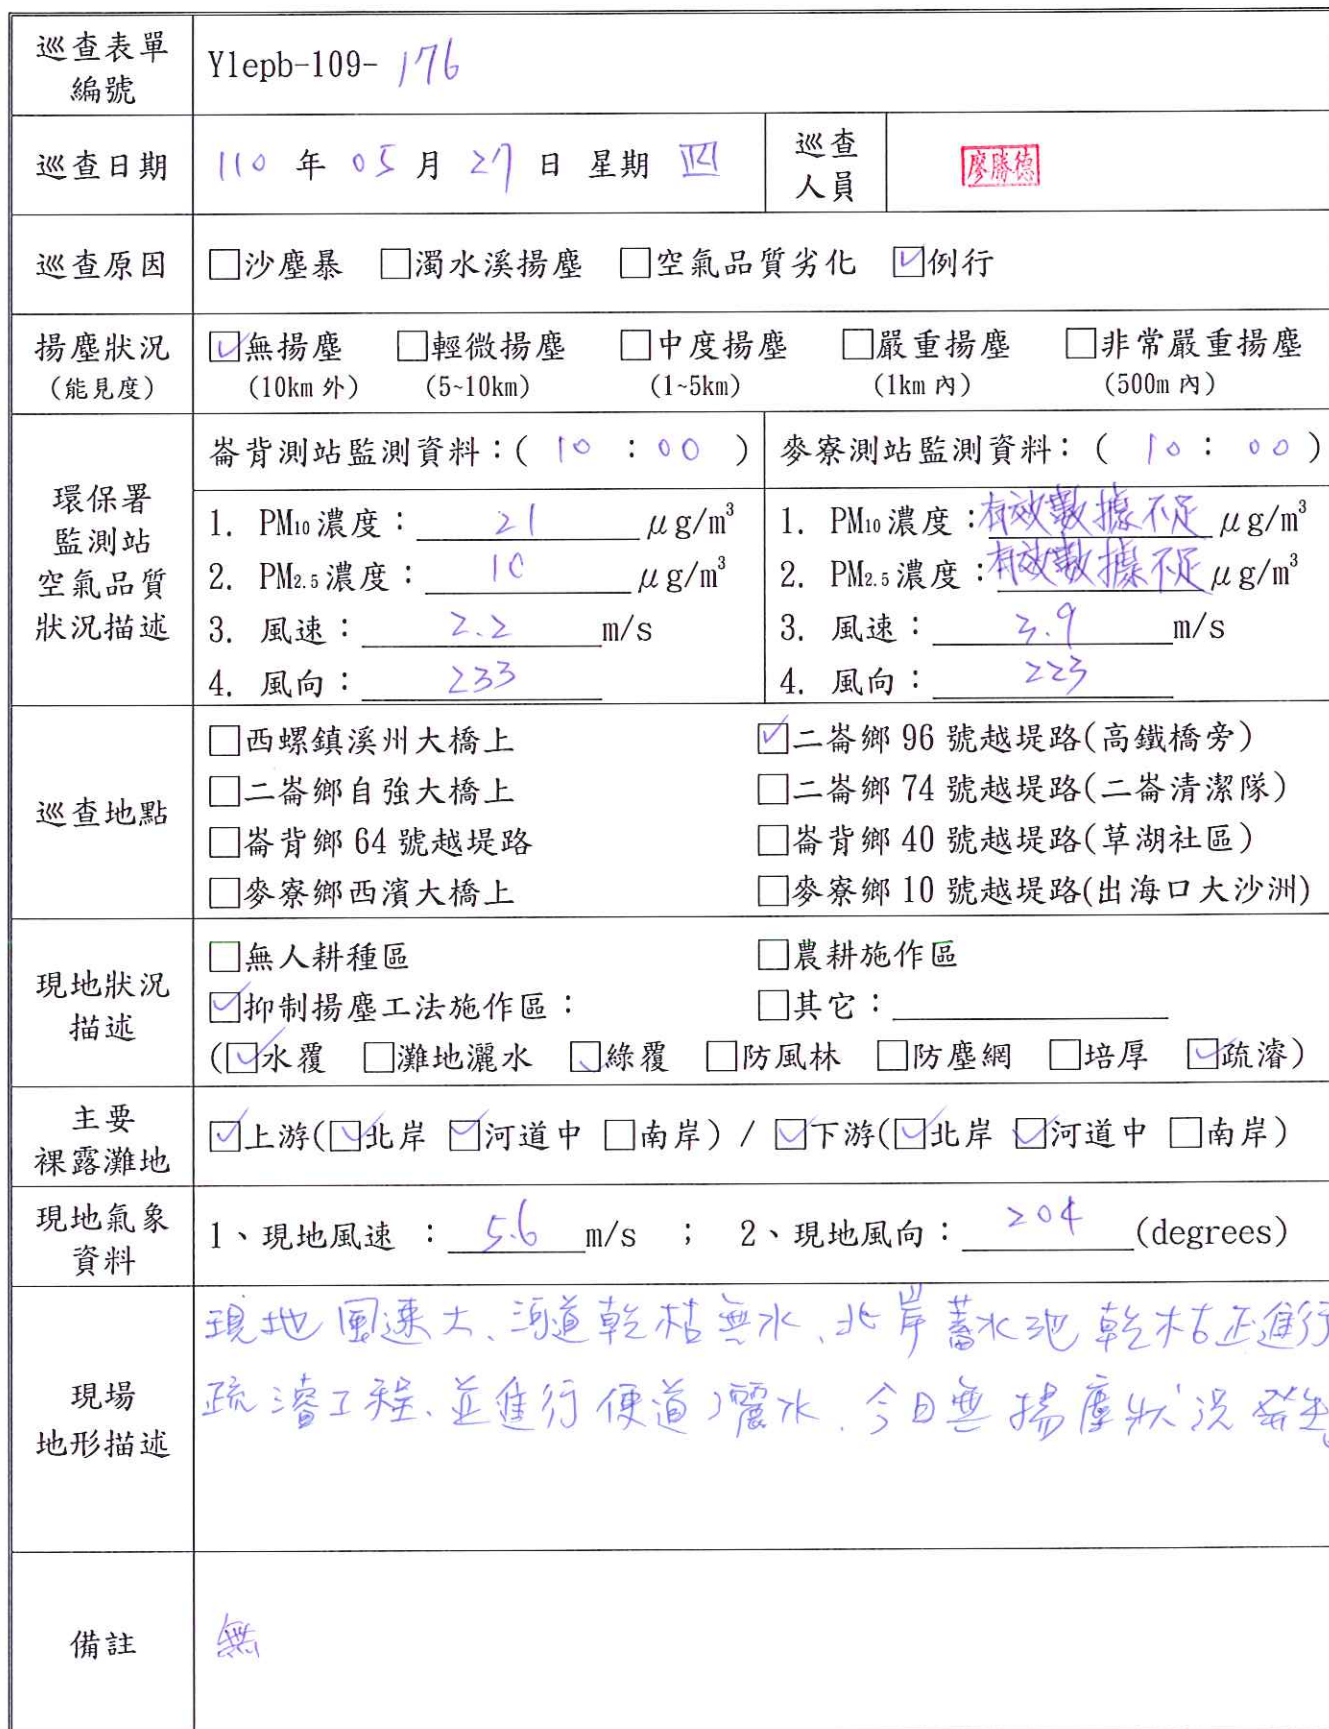 巡查表單
編號
Ylepb-109-176
巡查日期
110 年 05 月 27 日 星期 四
巡查
人員
廖勝德
巡查原因
□沙塵暴 □濁水溪揚塵 □空氣品質劣化 ☑例行
揚塵狀況
(能見度)
☑無揚塵 □輕微揚塵 □中度揚塵 □嚴重揚塵 □非常嚴重揚塵
(10km 外) (5~10km) (1~5km) (1km 內) (500m 內)
環保署
監測站
空氣品質
狀況描述
崙背測站監測資料：( 10 : 00 )
1. PM₁₀濃度：21 μg/m³
2. PM₂.₅濃度：10 μg/m³
3. 風速：2.2 m/s
4. 風向：233
麥寮測站監測資料：( 10 : 00 )
1. PM₁₀濃度：有效數據不足 μg/m³
2. PM₂.₅濃度：有效數據不足 μg/m³
3. 風速：3.9 m/s
4. 風向：223
巡查地點
□西螺鎮溪州大橋上 ☑二崙鄉 96 號越堤路(高鐵橋旁)
□二崙鄉自強大橋上 □二崙鄉 74 號越堤路(二崙清潔隊)
□崙背鄉 64 號越堤路 □崙背鄉 40 號越堤路(草湖社區)
□麥寮鄉西濱大橋上 □麥寮鄉 10 號越堤路(出海口大沙洲)
現地狀況
描述
□無人耕種區 □農耕施作區
☑抑制揚塵工法施作區： □其它：
(☑水覆 □灘地灑水 ☑綠覆 □防風林 □防塵網 □培厚 ☑疏濬)
主要
裸露灘地
☑上游(☑北岸 ☑河道中 □南岸) / ☑下游(☑北岸 ☑河道中 □南岸)
現地氣象
資料
1、現地風速 ：5.6 m/s ； 2、現地風向：204 (degrees)
現場
地形描述
現地風速大、河道乾枯無水、北岸蓄水池乾枯正進行
疏濬工程、並進行便道灑水、今日無揚塵狀況發生
備註
無